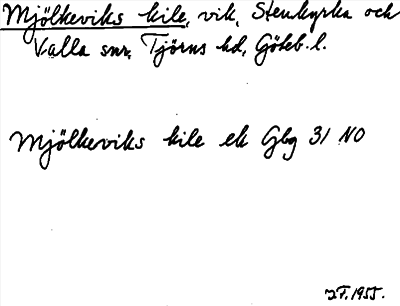 Mjölkeviks kile, vik, Stenkyrka och
Valla snr, Tjörns hd, Göteb. l.
Mjölkeviks kile ek Gbg 31 NO
1955.